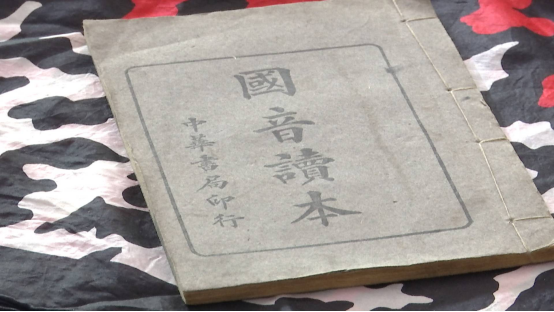 國音讀本
中華書局印行